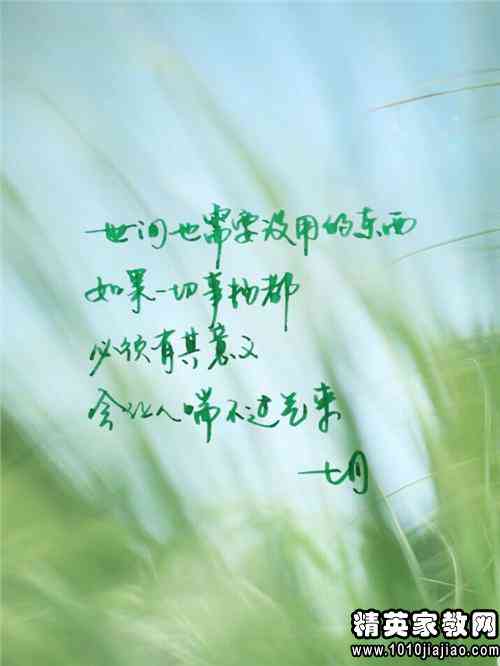 世间也需要没用的东西
如果一切事物都
必须有其意义
会让人喘不过气来
七月
精英家教网
www.1010jiajiao.com